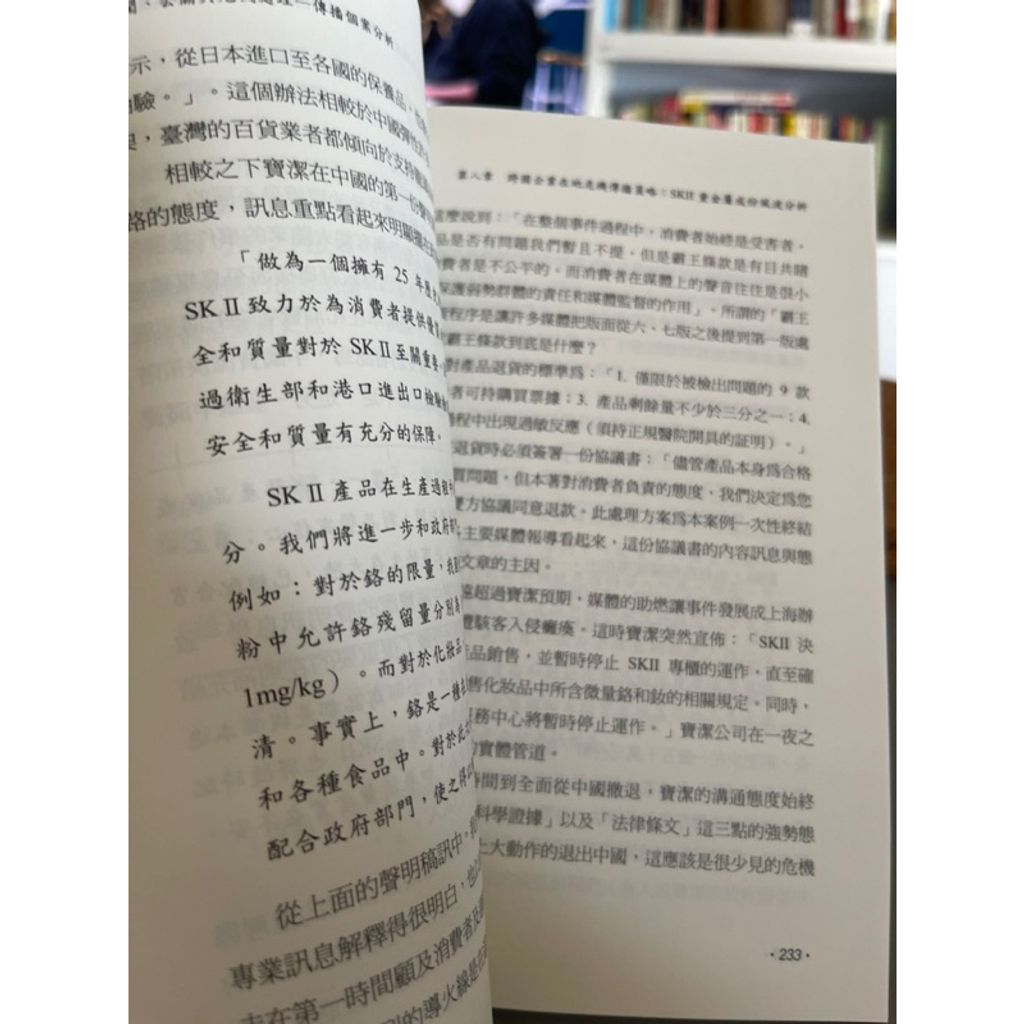 傳播個案分析
示，從日本進口至各國的保養品，
驗。」。這個辦法相較於中國
，臺灣的百貨業者都傾向於支持
相較之下寶潔在中國的第一
路的態度，訊息重點看起來明顯
「做為一個擁有 25 年
SK II 致力於為消費者提供優
全和質量對於 SK II 至關重要。
過衛生部和港口進出口檢驗
安全和質量有充分的保障。
SK II 產品在生產過程
分。我們將進一步和政府
例如：對於鉻的限量，我
粉中允許鉻殘留量分別為
1mg/kg）。而對於化妝品
清。事實上，鉻是一種
和各種食品中。對於此
配合政府部門，使之得
從上面的聲明稿訊中，
專業訊息解釋得很明白，也
在第一時間顧及消費者及
的導火線是在
第八章 跨國企業在地危機傳播策略：SKII 重金屬成份風波分析
這麼說到：「在整個事件過程中，消費者始終是受害者，
品是否有問題我們暫且不提。但是霸王條款是有目共睹
費者是不公平的。而消費者在媒體上的聲音往往是很小
保護弱勢群體的責任和媒體監督的作用」。所謂的「霸王
貨程序是讓許多媒體把版面從六、七版之後提到第一版處
霸王條款到底是什麼？
對產品退貨的標準為：「1. 僅限於被檢出問題的 9 款
者可持購買票據：3. 產品剩餘量不少於三分之一：4.
過程中出現過敏反應（須持正規醫院開具的証明）。」
退貨時必須簽署一份協議書：「儘管產品本身為合格
質問題，但本著對消費者負責的態度，我們決定為您
雙方協議同意退款。此處理方案為本案例一次性終結
主要媒體報導看起來，這份協議書的內容訊息與態
文章的主因。
遠超過寶潔預期，媒體的助燃讓事件發展成上海辦
遭駭客入侵癱瘓。這時寶潔突然宣佈：「SKII 決
產品銷售，並暫時停止 SKII 專櫃的運作，直至確
售化妝品中所含微量鉻和釹的相關規定。同時，
服務中心將暫時停止運作。」寶潔公司在一夜之
的實體管道。
時間到全面從中國撤退，寶潔的溝通態度始終
科學證據」以及「法律條文」這三點的強勢態
上大動作的退出中國，這應該是很少見的危機
·233·